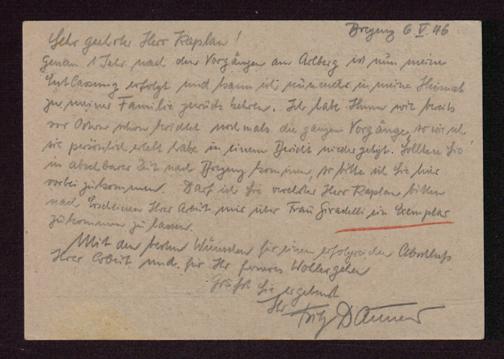 Bregenz 6 V. 46
Sehr geehrter Herr Kaplan!
Genau 1 Jahr nach den Vorgängen am Arlberg ist nun meine
Entlassung erfolgt und kann ich nunmehr in meine Heimat
zu meiner Familie zurück kehren. Ich habe Ihnen wie bereits
vor Ostern schon nochmals die ganzen Vorgänge, so wie ich
sie persönlich erlebt habe in einem Bericht niedergelegt. Sollten Sie
in absehbarer Zeit nach Bregenz kommen, so bitte ich Sie hier
vorbei zu kommen. Darf ich Sie Herr Kaplan bitten
nach Erscheinen Ihrer Arbeit mir über Frau Giradelli ein Exemplar
zukommen zu lassen.
Mit den besten Wünschen für einen erfolgreichen Abschluß
Ihrer Arbeit und für Ihr ferneres Wohlergehen
Grüßt Sie ergebenst
Ihr Fritz